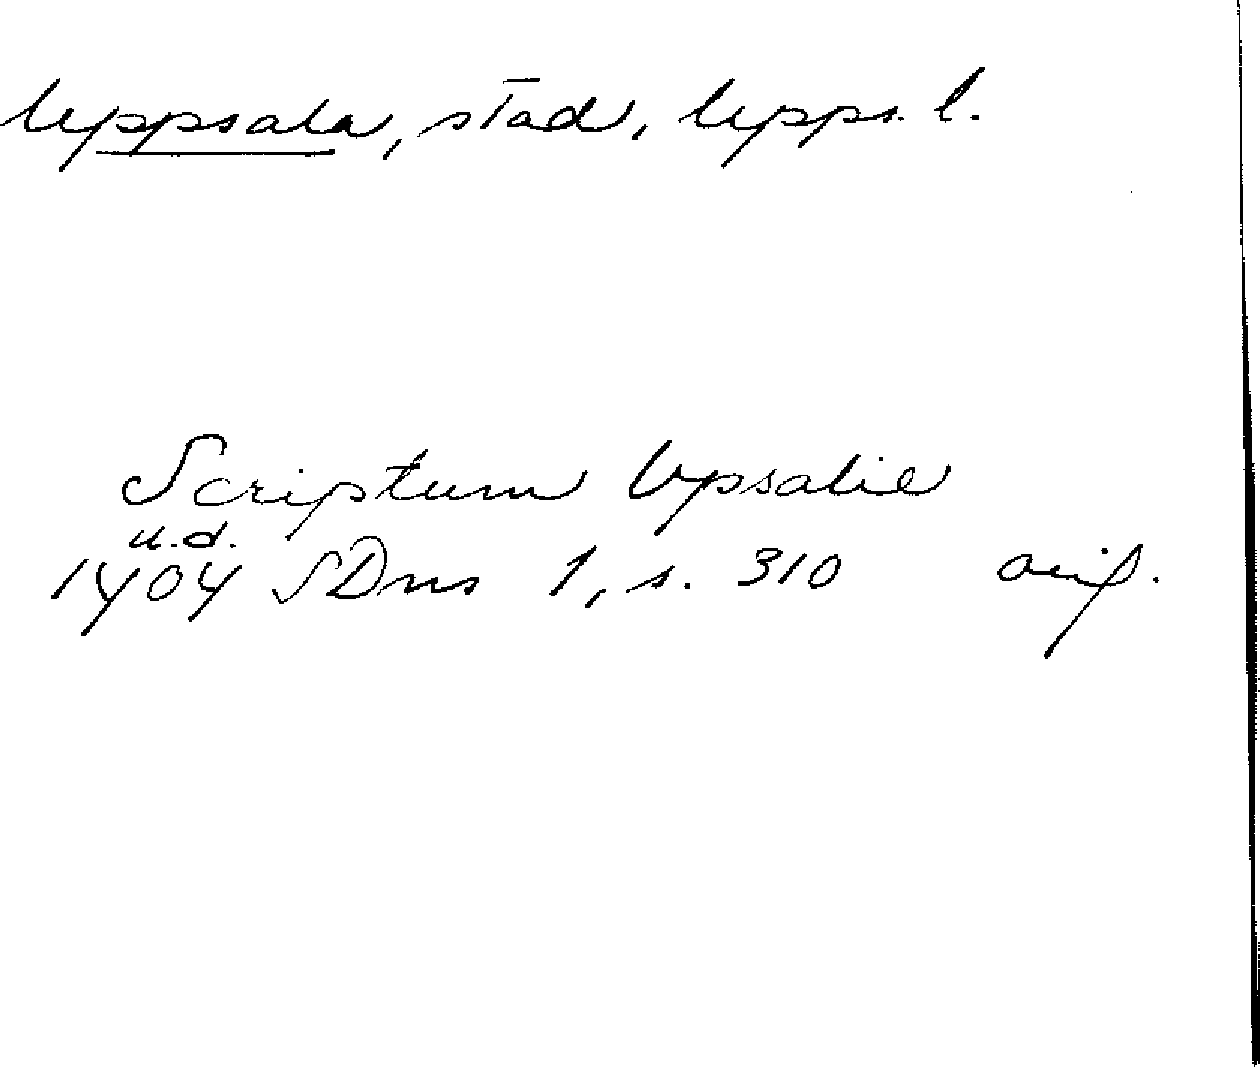 Uppsala, stad, Upps. l.
Scriptum Vpsalie
u.d.
1404 SDns 1, s. 310 avs.